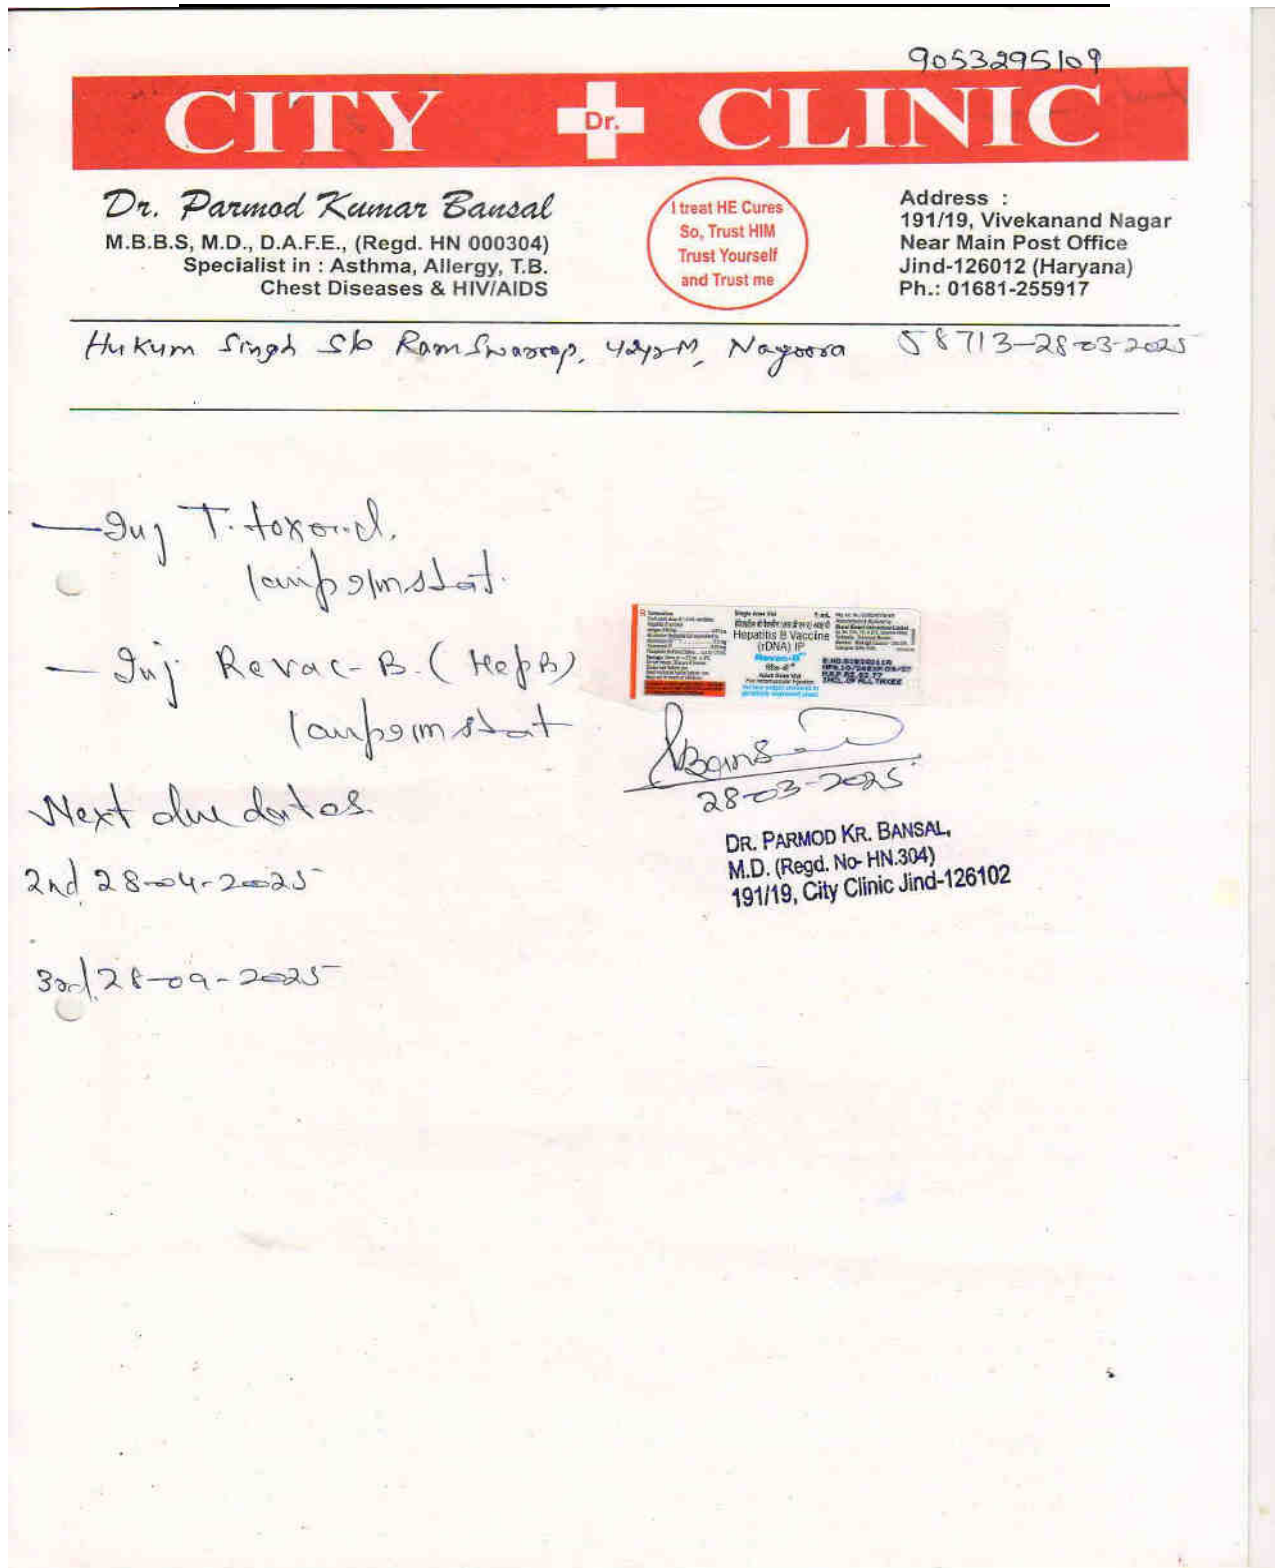 9053295109
CITY Dr. CLINIC
Dr. Parmod Kumar Bansal
M.B.B.S, M.D., D.A.F.E., (Regd. HN 000304)
Specialist in : Asthma, Allergy, T.B.
Chest Diseases & HIV/AIDS
I treat HE Cures
So, Trust HIM
Trust Yourself
and Trust me
Address :
191/19, Vivekanand Nagar
Near Main Post Office
Jind-126012 (Haryana)
Ph.: 01681-255917
Hukum Singh S/o Ram Swaroop, 42yrs M, Nagoora 58713-28-03-2025
— Inj T. toxoid.
1 amp I/m stat.
— Inj. Revac-B. (Hep B)
1 amp I/m stat
Single dose Vial 1 mL
Hepatitis B Vaccine
(rDNA) IP
Revac-B
Adult dose Vial
INCL. OF ALL TAXES
Bansal
28-03-2025
DR. PARMOD KR. BANSAL,
M.D. (Regd. No- HN.304)
191/19, City Clinic Jind-126102
Next due dates
2nd 28-04-2025
3rd 28-09-2025